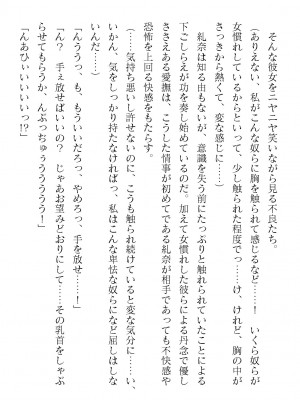 そんな彼女をニヤニヤ笑いながら見る不良たち。
(ありえない、私がこんな奴らに胸を触られて感じるなど……！　いくら奴らが
女慣れしているからといって、少し触られた程度でっ……け、けれど、胸の中が
さっきから熱くて、変な感じに……)
糺奈は知る由もないが、意識を失う前にたっぷりと触れられていたことによる
下ごしらえが功を奏し始めているのだ。加えて女慣れした彼らによる丹念で優し
ささえある愛撫は、こうした情事が初めてである糺奈が相手であっても不快感や
恐怖を上回る快感をもたらす。
(……気持ち悪いし許せないのに、こうも触られ続けていると変な気分に……い、
いかん、気をしっかり持たなければっ、私はこんな卑怯な奴らなどに屈しはしな
いんだ……)
「んうっ、も、もういいだろっ、やめろっ、手を放せ……！」
「ん？　手ぇ放せばいいの？　じゃあお望みどおりにして……その乳首をしゃぶ
らせてもらうか、んぶっちゅぅうううううう！」
「んあひいいいいいっ!?」